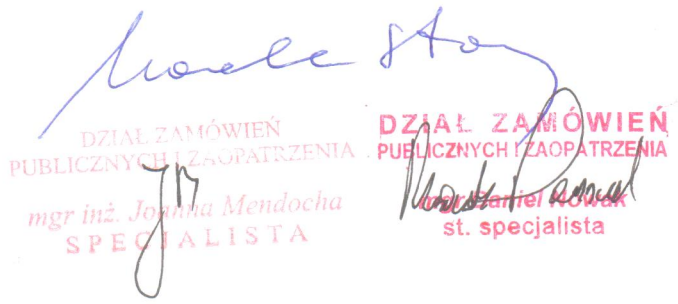 DZIAŁ ZAMÓWIEŃ
PUBLICZNYCH I ZAOPATRZENIA
mgr inż. Joanna Mendocha
SPECJALISTA
DZIAŁ ZAMÓWIEŃ
PUBLICZNYCH I ZAOPATRZENIA
mgr Daniel Nowak
st. specjalista